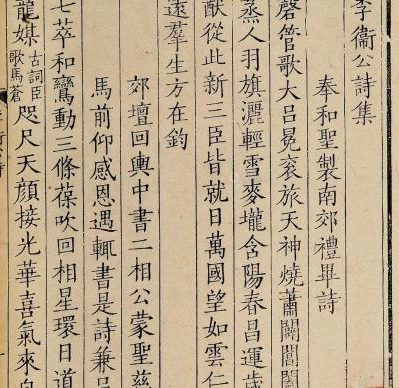 李衞公詩集
奉和聖製南郊禮畢詩
磬管歌大呂冕衮旅天神燒蕭闢閶闔
蒸人羽旗灑輕雪麥壠含陽春昌運歲
猷從此新三臣皆就日萬國望如雲仁
遠羣生方在鈞
郊壇回輿中書二相公蒙聖慈
馬前仰感恩遇輒書是詩兼
七萃和鸞動三條葆吹回相星環日道
龍媒古詞臣歌馬蒼咫尺天顏接光華喜氣來